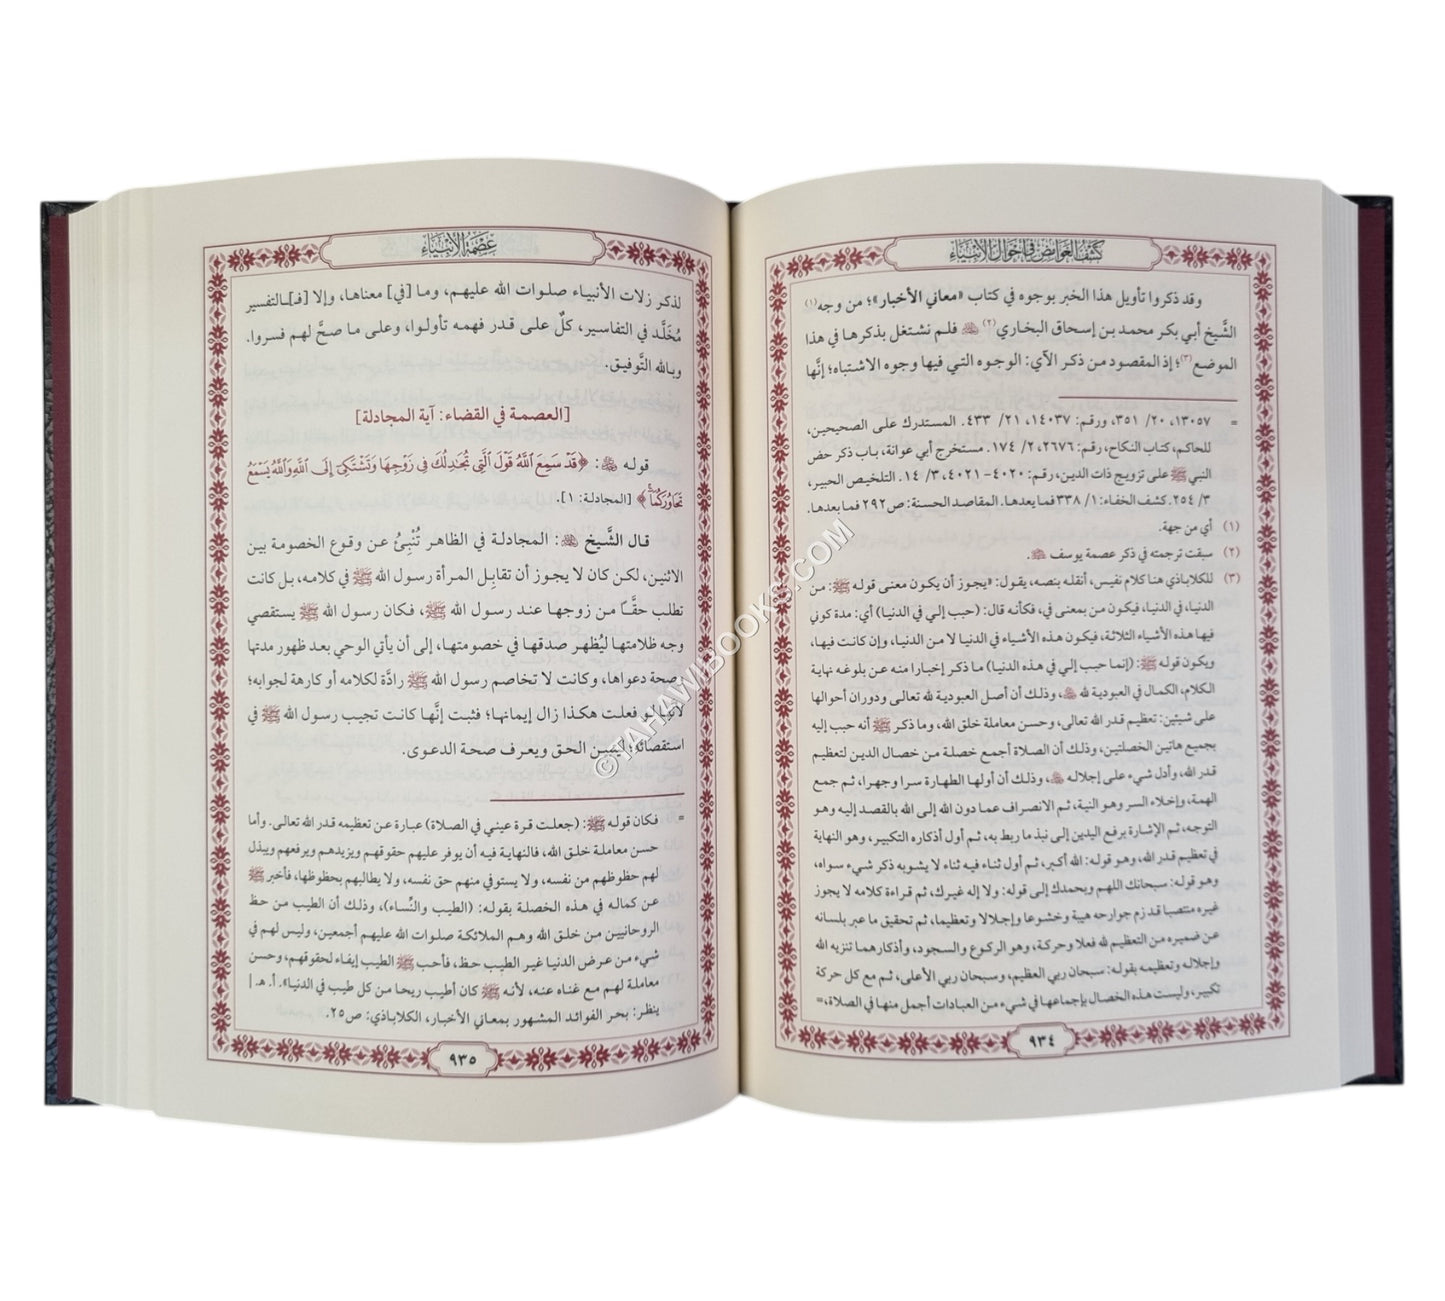 كشف الغوامض في أحوال الأنبياء
وقد ذكروا تأويل هذا الخبر بوجوه في كتاب «معاني الأخبار»؛ من وجه(١)
الشَّيخ أبي بكر محمد بن إسحاق البخاري(٢) ﵀ فلم نشتغل بذكرها في هذا
الموضع(٣)؛ إذ المقصود من ذكر الآي: الوجوه التي فيها وجوه الاشتباه؛ إنَّها
= ١٣٠٥٧، ٢٠/ ٣٥١، ورقم: ١٤٠٣٧، ٢١/ ٤٣٣. المستدرك على الصحيحين،
للحاكم، كتاب النكاح، رقم: ٢٦٧٦، ٢/ ١٧٤. مستخرج أبي عوانة، باب ذكر حض
النبي ﷺ على تزويج ذات الدين، رقم: ٤٠٢٠- ٤٠٢١، ٣/ ١٤. التلخيص الحبير،
٣/ ٢٥٤. كشف الخفاء: ١/ ٣٣٨ فما بعدها. المقاصد الحسنة: ص٢٩٢ فما بعدها.
(١) أي من جهة.
(٢) سبقت ترجمته في ذكر عصمة يوسف ﵇.
(٣) للكلاباذي هنا كلام نفيس، أنقله بنصه، يقول: «يجوز أن يكون معنى قوله ﷺ: من
الدنيا، في الدنيا، فيكون من بمعنى في، فكأنه قال: (حبب إلي في الدنيا) أي: مدة كوني
فيها هذه الأشياء الثلاثة، فيكون هذه الأشياء في الدنيا لا من الدنيا، وإن كانت فيها،
ويكون قوله ﷺ: (إنما حبب إلي في هذه الدنيا) ما ذكر إخبارا منه عن بلوغه نهاية
الكلام، الكمال في العبودية لله ﷻ، وذلك أن أصل العبودية لله تعالى ودوران أحوالها
على شيئين: تعظيم قدر الله تعالى، وحسن معاملة خلق الله، وما ذكر ﷺ أنه حبب إليه
بجميع هاتين الخصلتين، وذلك أن الصلاة أجمع خصلة من خصال الدين لتعظيم
قدر الله، وأدل شيء على إجلاله ﷻ، وذلك أن أولها الطهارة سرا وجهرا، ثم جمع
الهمة، وإخلاء السر وهو النية، ثم الانصراف عما دون الله إلى الله بالقصد إليه وهو
التوجه، ثم الإشارة برفع اليدين إلى نبذ ما ربط به، ثم أول أذكاره التكبير، وهو النهاية
في تعظيم قدر الله، وهو قوله: الله أكبر، ثم أول ثناء فيه ثناء لا يشوبه ذكر شيء سواه،
وهو قوله: سبحانك اللهم وبحمدك إلى قوله: ولا إله غيرك، ثم قراءة كلامه لا يجوز
غيره منتصبا قد زم جوارحه هيبة وخشوعا وإجلالا وتعظيما، ثم تحقيق ما عبر بلسانه
عن ضميره من التعظيم لله فعلا وحركة، وهو الركوع والسجود، وأذكارهما تنزيه الله
وإجلاله وتعظيمه بقوله: سبحان ربي العظيم، وسبحان ربي الأعلى، ثم مع كل حركة
تكبير، وليست هذه الخصال بإجماعها في شيء من العبادات أجمل منها في الصلاة، =
٩٣٤
عصمة الأنبياء
لذكر زلات الأنبياء صلوات الله عليهم، وما [في] معناها، وإلا [فـ]ـالتفسير
مُخَلَّد في التفاسير، كلٌ على قدر فهمه تأولوا، وعلى ما صحَّ لهم فسروا.
وبالله التَّوفيق.
[العصمة في القضاء: آية المجادلة]
قوله ﷻ: ﴿قَدْ سَمِعَ ٱللَّهُ قَوْلَ ٱلَّتِى تُجَٰدِلُكَ فِى زَوْجِهَا وَتَشْتَكِىٓ إِلَى ٱللَّهِ وَٱللَّهُ يَسْمَعُ
تَحَاوُرَكُمَآ﴾ [المجادلة: ١].
قال الشَّيخ ﵀: المجادلة في الظاهر تُنْبِئُ عن وقوع الخصومة بين
الاثنين، لكن كان لا يجوز أن تقابِل المرأة رسول الله ﷺ في كلامه، بل كانت
تطلب حقًّا من زوجها عند رسول الله ﷺ، فكان رسول الله ﷺ يستقصي
وجه ظلامتها ليُظهر صدقها في خصومتها، إلى أن يأتي الوحي بعد ظهور مدتها
وصحة دعواها، وكانت لا تخاصم رسول الله ﷺ رادَّة لكلامه أو كارهة لجوابه؛
لأنها لو فعلت هكذا زال إيمانها؛ فثبت إنَّها كانت تجيب رسول الله ﷺ في
استقصائه؛ ليتبين الحق ويعرف صحة الدعوى.
= فكان قوله ﷺ: (جعلت قرة عيني في الصلاة) عبارة عن تعظيمه قدر الله تعالى. وأما
حسن معاملة خلق الله، فالنهاية فيه أن يوفر عليهم حقوقهم ويزيدهم ويرفعهم ويبذل
لهم حظوظهم من نفسه، ولا يستوفي منهم حق نفسه، ولا يطالبهم بحظوظها، فأخبر ﷺ
عن كماله في هذه الخصلة بقوله: (الطيب والنِّساء)، وذلك أن الطيب من حظ
الروحانيين من خلق الله وهم الملائكة صلوات الله عليهم أجمعين، وليس لهم في
شيء من عرض الدنيا غير الطيب حظ، فأحب ﷺ الطيب إيفاء لحقوقهم، وحسن
معاملة لهم مع غناه عنه، لأنه ﷺ كان أطيب ريحا من كل طيب في الدنيا». أ. هـ |
ينظر: بحر الفوائد المشهور بمعاني الأخبار، الكلاباذي: ص٢٥.
٩٣٥
©TAHAWIBOOKS.COM